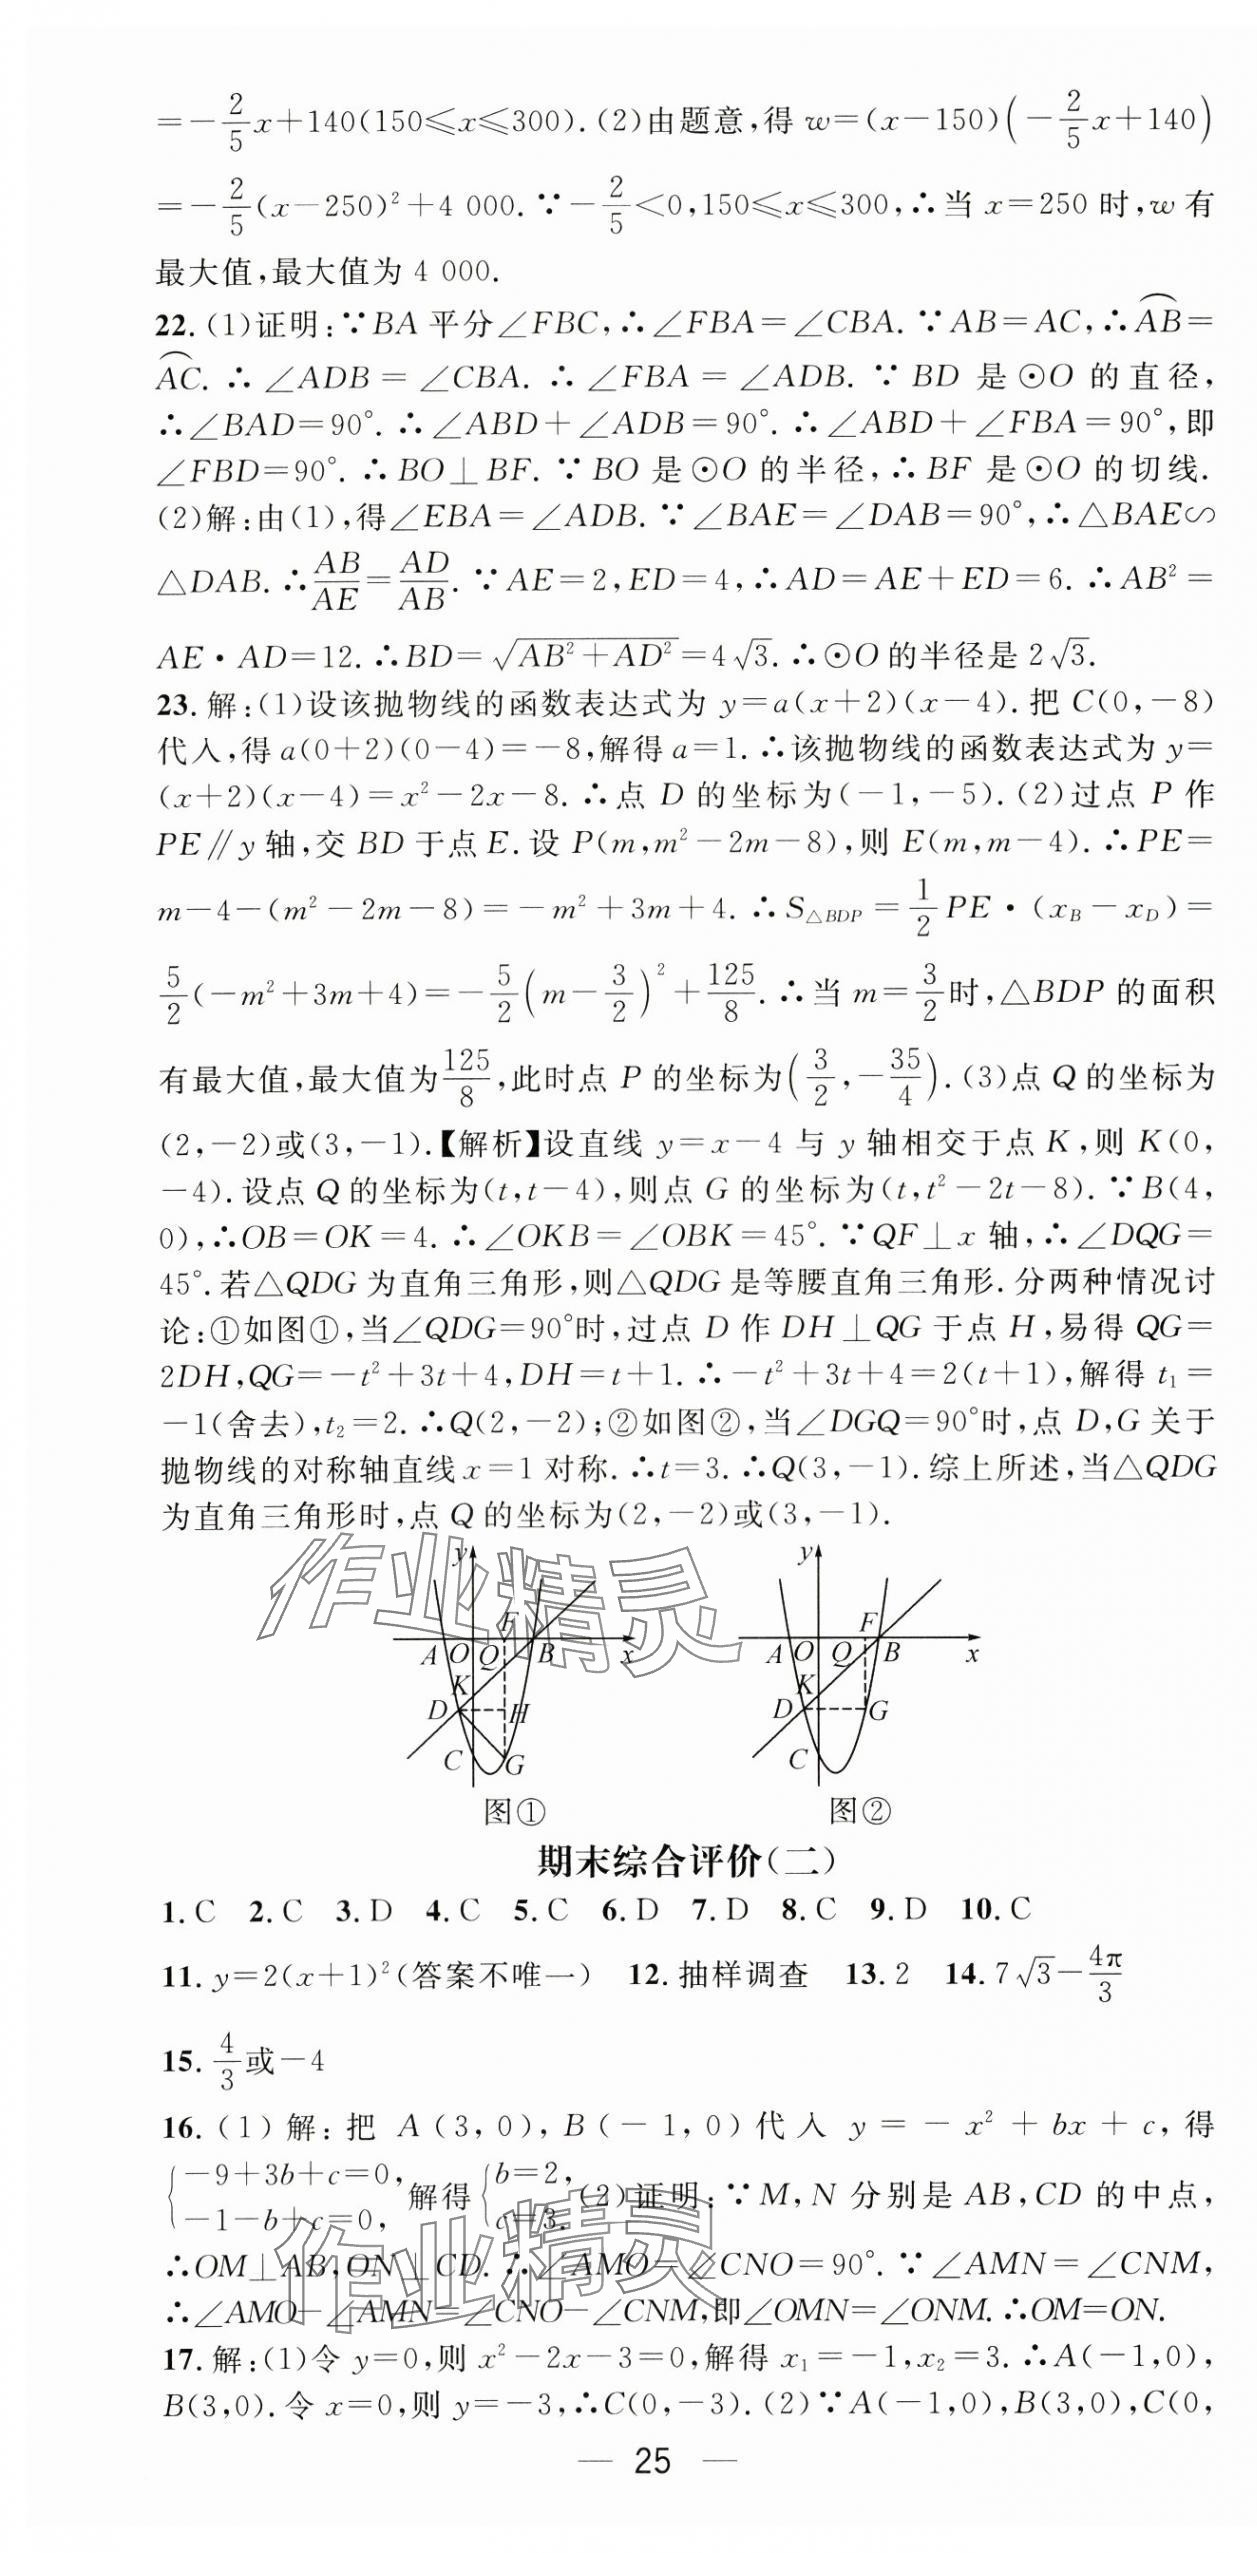 =-\frac{2}{5}x+140(150≤x≤300).(2)由题意,得 w=(x-150)(-\frac{2}{5}x+140)
=-\frac{2}{5}(x-250)²+4 000.∵-\frac{2}{5}<0,150≤x≤300,∴当 x=250 时,w 有
最大值,最大值为 4 000.
22.(1)证明:∵BA 平分∠FBC,∴∠FBA=∠CBA.∵AB=AC,∴\overset{\frown}{AB}=
\overset{\frown}{AC}.∴∠ADB=∠CBA.∴∠FBA=∠ADB.∵BD 是⊙O 的直径,
∴∠BAD=90°.∴∠ABD+∠ADB=90°.∴∠ABD+∠FBA=90°,即
∠FBD=90°.∴BO⊥BF.∵BO 是⊙O 的半径,∴BF 是⊙O 的切线.
(2)解:由(1),得∠EBA=∠ADB.∵∠BAE=∠DAB=90°,∴△BAE∽
△DAB.∴\frac{AB}{AE}=\frac{AD}{AB}.∵AE=2,ED=4,∴AD=AE+ED=6.∴AB²=
AE·AD=12.∴BD=\sqrt{AB²+AD²}=4√3.∴⊙O 的半径是 2√3.
23.解:(1)设该抛物线的函数表达式为 y=a(x+2)(x-4).把 C(0,-8)
代入,得 a(0+2)(0-4)=-8,解得 a=1.∴该抛物线的函数表达式为 y=
(x+2)(x-4)=x²-2x-8.∴点 D 的坐标为(-1,-5).(2)过点 P 作
PE∥y 轴,交 BD 于点 E.设 P(m,m²-2m-8),则 E(m,m-4).∴PE=
m-4-(m²-2m-8)=-m²+3m+4.∴S_{△BDP}=\frac{1}{2}PE·(x_B-x_D)=
\frac{5}{2}(-m²+3m+4)=-\frac{5}{2}(m-\frac{3}{2})²+\frac{125}{8}.∴当 m=\frac{3}{2}时,△BDP 的面积
有最大值,最大值为\frac{125}{8},此时点 P 的坐标为(\frac{3}{2},-\frac{35}{4}).(3)点 Q 的坐标为
(2,-2)或(3,-1).【解析】设直线 y=x-4 与 y 轴相交于点 K,则 K(0,
-4).设点 Q 的坐标为(t,t-4),则点 G 的坐标为(t,t²-2t-8).∵B(4,
0),∴OB=OK=4.∴∠OKB=∠OBK=45°.∵QF⊥x 轴,∴∠DQG=
45°.若△QDG 为直角三角形,则△QDG 是等腰直角三角形.分两种情况讨
论:①如图①,当∠QDG=90°时,过点 D 作 DH⊥QG 于点 H,易得 QG=
2DH,QG=-t²+3t+4,DH=t+1.∴-t²+3t+4=2(t+1),解得 t₁=
-1(舍去),t₂=2.∴Q(2,-2);②如图②,当∠DGQ=90°时,点 D,G 关于
抛物线的对称轴直线 x=1 对称.∴t=3.∴Q(3,-1).综上所述,当△QDG
为直角三角形时,点 Q 的坐标为(2,-2)或(3,-1).
作业精灵
y F A O Q B x K D H C G
y F A O Q B x K D G C
图① 图②
期末综合评价(二)
1.C 2.C 3.D 4.C 5.C 6.D 7.D 8.C 9.D 10.C
11.y=2(x+1)²(答案不唯一) 12.抽样调查 13.2 14.7√3-\frac{4π}{3}
15.\frac{4}{3}或-4
16.(1)解:把 A(3,0),B(-1,0)代入 y=-x²+bx+c,得
{-9+3b+c=0, -1-b+c=0, 解得 {b=2, c=3. (2)证明:∵M,N 分别是 AB,CD 的中点,
作业精灵
∴OM⊥AB,ON⊥CD.∴∠AMO=∠CNO=90°.∵∠AMN=∠CNM,
∴∠AMO-∠AMN=∠CNO-∠CNM,即∠OMN=∠ONM.∴OM=ON.
17.解:(1)令 y=0,则 x²-2x-3=0,解得 x₁=-1,x₂=3.∴A(-1,0),
B(3,0).令 x=0,则 y=-3,∴C(0,-3).(2)∵A(-1,0),B(3,0),C(0,
— 25 —